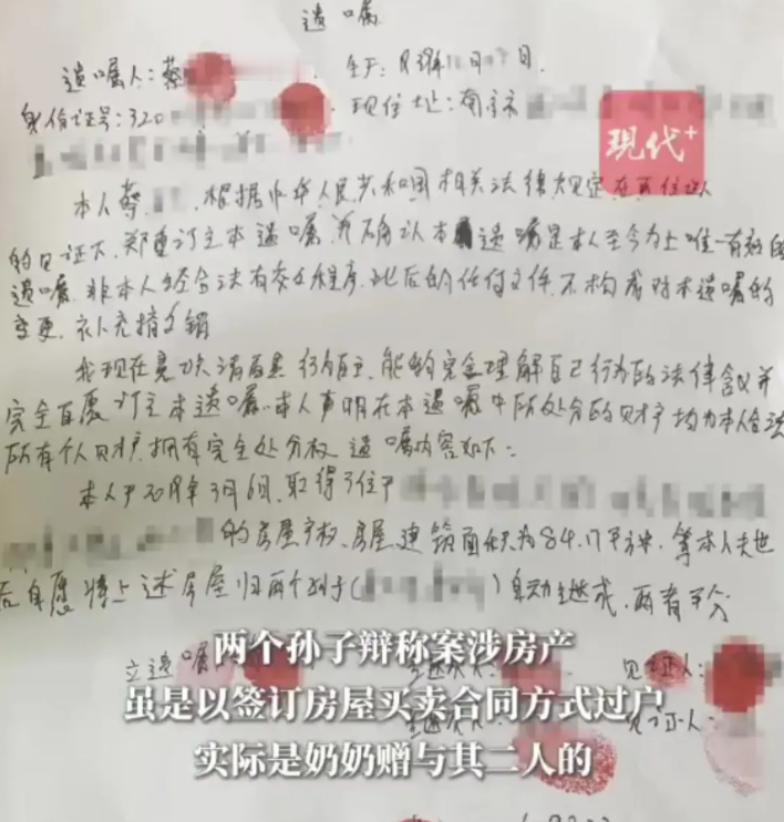 遗嘱
遗嘱人:蔡 生于: 月 日.
身份证号:320 现住址:南京
现代+
本人蔡 ,根据中华人民共和国相关法律规定,在两位证人
的见证下,郑重订立本遗嘱,并确认本遗嘱是本人至今为止唯一有效的
遗嘱.非本人经合法有效程序,此后的任何文件,不构成对本遗嘱的
变更、补充撤销
我现在意识清晰 行为自主、能够完全理解自己行为的法律含义并
完全自愿订立本遗嘱.本人声明在本遗嘱中所处分的财产均为本人合法
所有个人财产,拥有完全处分权 遗嘱内容如下:
本人于 年3月6日,取得了位于
的房屋产权、房屋建筑面积为84.17平方米.等本人去世
后自愿将上述房屋归两个孙子( )自动继承,两者平分
立遗嘱 见证人:
见证人:
两个孙子辩称案涉房产
虽是以签订房屋买卖合同方式过户
实际是奶奶赠与其二人的